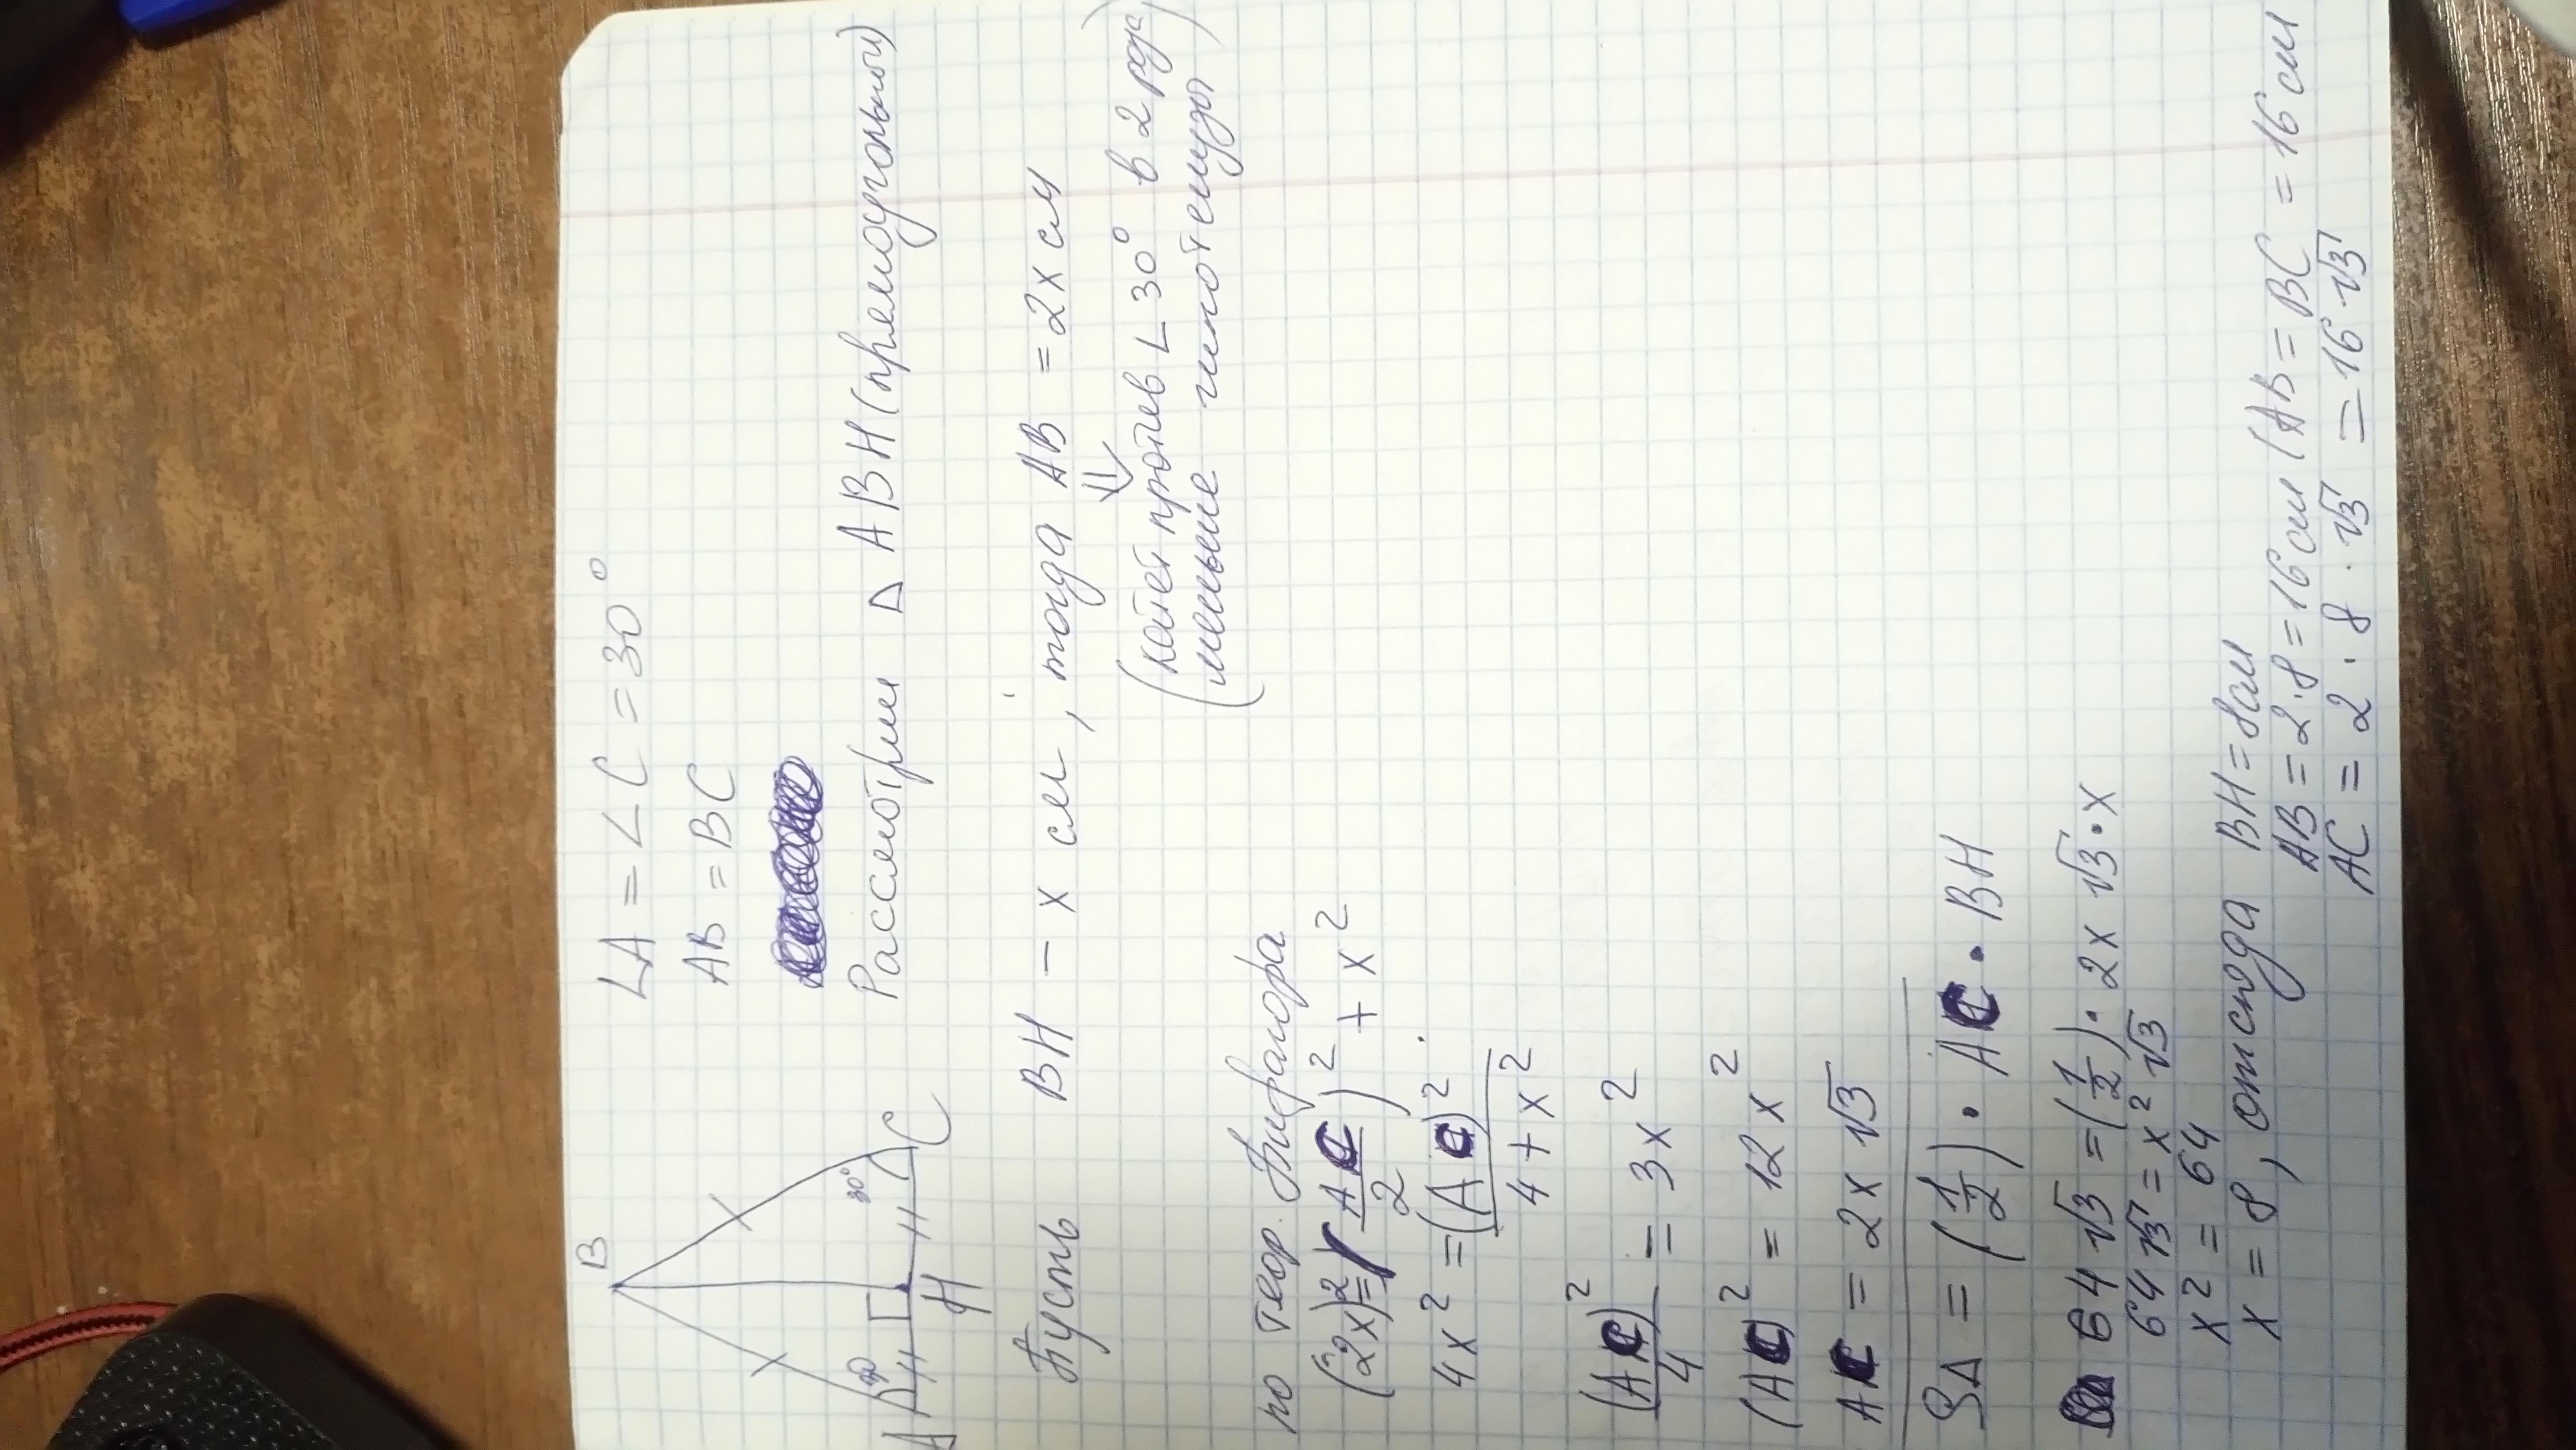 B
A
H
C
30°
∠A = ∠C = 30°
AB = BC
Рассмотрим Δ ABH (прямоугольный)
Пусть BH – x см, тогда AB = 2x см
(катет против ∠30° в 2 раза)
(меньше гипотенузы)
по теор. Пифагора
(2x)² = (AC/2)² + x²
4x² = (AC)²/4 + x²
(AC)²/4 = 3x²
(AC)² = 12x²
AC = 2x√3
SΔ = (1/2) · AC · BH
64√3 = (1/2) · 2x√3 · x
64√3 = x²√3
x² = 64
x = 8, отсюда BH = 8см
AB = 2·8 = 16 см (AB = BC = 16 см
AC = 2 · 8 · √3 = 16√3